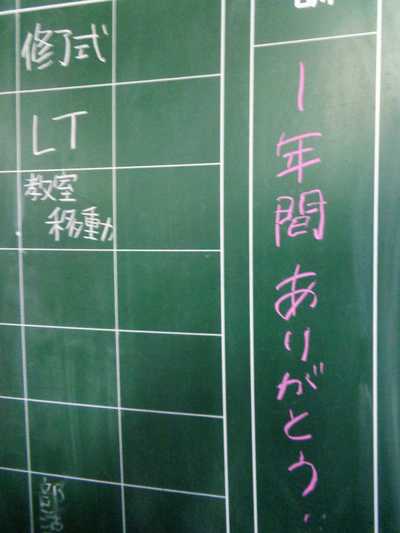 修了式
LT
教室
移動
1年間ありがとう